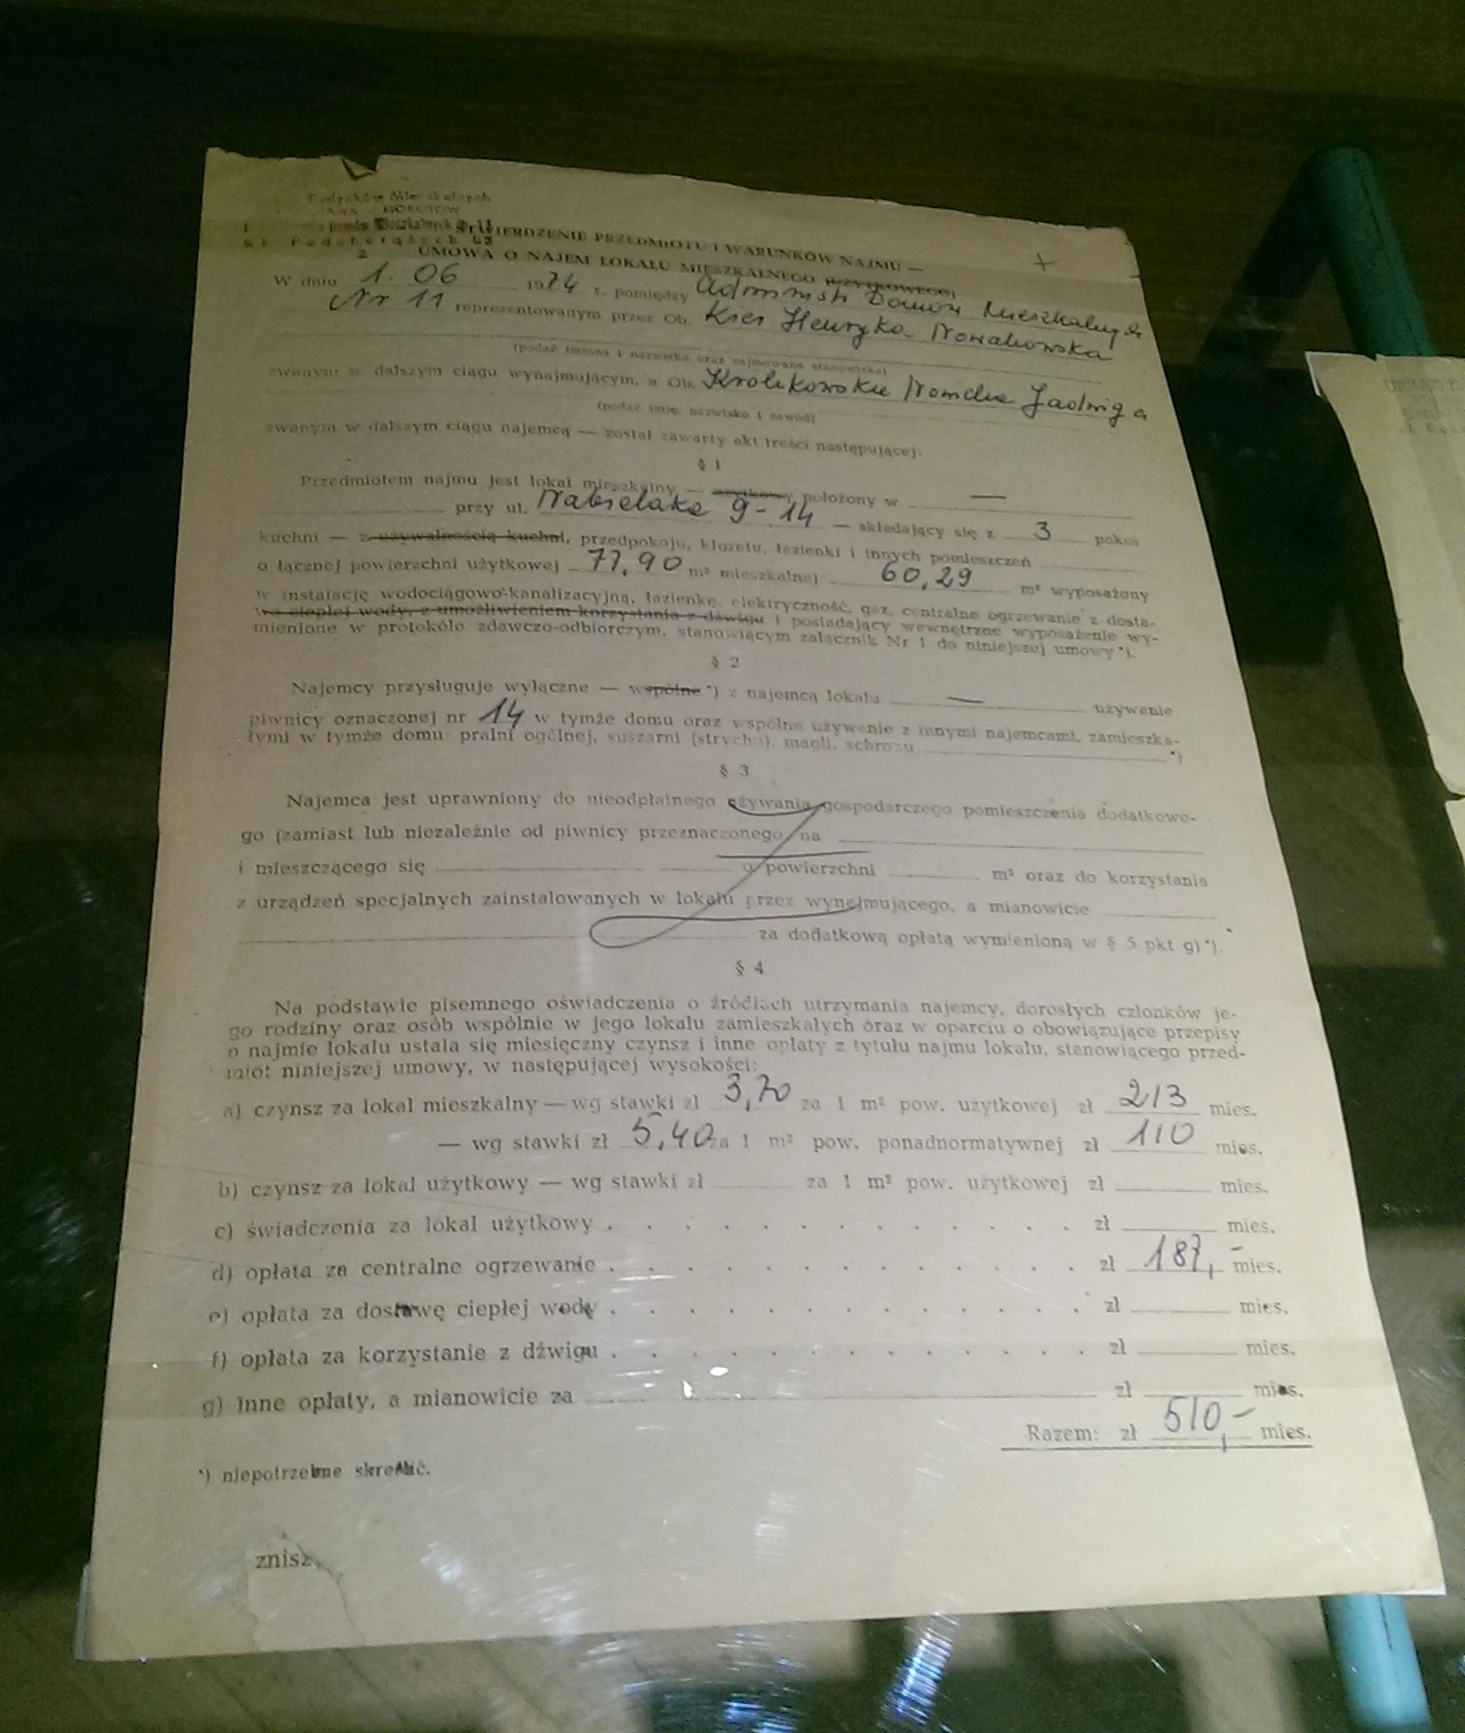 Budynków Mieszkalnych
MOKOTÓW
Domów Mieszkalnych Nr 11
ul. Podchorążych
STWIERDZENIE PRZEDMIOTU I WARUNKÓW NAJMU —
UMOWA O NAJEM LOKALU MIESZKALNEGO (UŻYTKOWEGO)
W dniu 1. 06 1974 r. pomiędzy Administr Domów Mieszkalnych
Nr 11 reprezentowanym przez Ob. Kier Henryka Nowakowska
(podać imiona i nazwiska oraz zajmowane stanowiska)
zwanym w dalszym ciągu wynajmującym, a Ob. Jadwiga
(podać imię, nazwisko i zawód)
zwanym w dalszym ciągu najemcą — został zawarty akt treści następującej:
§ 1
Przedmiotem najmu jest lokal mieszkalny — użytkowy położony w —
przy ul. Nabielaka 9-14 — składający się z 3 pokoi
kuchni — z używalnością kuchni, przedpokoju, klozetu, łazienki i innych pomieszczeń
o łącznej powierzchni użytkowej 77,90 m² mieszkalnej 60,29 m² wyposażony
w instalację wodociągowo-kanalizacyjną, łazienkę, elektryczność, gaz, centralne ogrzewanie z dosta-
wą ciepłej wody, z umożliwieniem korzystania z dźwigu i posiadający wewnętrzne wyposażenie wy-
mienione w protokóle zdawczo-odbiorczym, stanowiącym załącznik Nr 1 do niniejszej umowy*).
§ 2
Najemcy przysługuje wyłączne — wspólne *) z najemcą lokalu — używanie
piwnicy oznaczonej nr 14 w tymże domu oraz wspólne używanie z innymi najemcami, zamieszka-
łymi w tymże domu: pralni ogólnej, suszarni (strychu), magli, schronu *)
§ 3
Najemca jest uprawniony do nieodpłatnego używania gospodarczego pomieszczenia dodatkowe-
go (zamiast lub niezależnie od piwnicy przeznaczonego na
i mieszczącego się o powierzchni m² oraz do korzystania
z urządzeń specjalnych zainstalowanych w lokalu przez wynajmującego, a mianowicie
za dodatkową opłatą wymienioną w § 5 pkt g)*).
§ 4
Na podstawie pisemnego oświadczenia o źródłach utrzymania najemcy, dorosłych członków je-
go rodziny oraz osób wspólnie w jego lokalu zamieszkałych oraz w oparciu o obowiązujące przepisy
o najmie lokalu ustala się miesięczny czynsz i inne opłaty z tytułu najmu lokalu, stanowiącego przed-
miot niniejszej umowy, w następującej wysokości:
a) czynsz za lokal mieszkalny — wg stawki zł 3,70 za 1 m² pow. użytkowej zł 213 mies.
— wg stawki zł 5,40 za 1 m² pow. ponadnormatywnej zł 110 mies.
b) czynsz za lokal użytkowy — wg stawki zł za 1 m² pow. użytkowej zł mies.
c) świadczenia za lokal użytkowy . . . . . . . . . . . . . zł mies.
d) opłata za centralne ogrzewanie . . . . . . . . . . . . . zł 187,- mies.
e) opłata za dostawę ciepłej wody . . . . . . . . . . . . . zł mies.
f) opłata za korzystanie z dźwigu . . . . . . . . . . . . . zł mies.
g) inne opłaty, a mianowicie za zł mies.
Razem: zł 510,- mies.
*) niepotrzebne skreślić.
znisz.